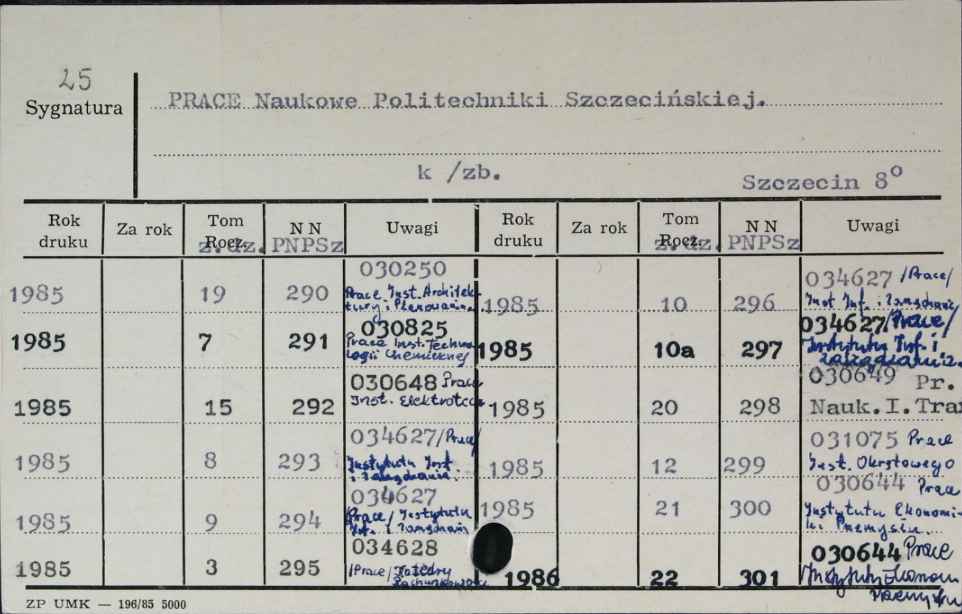 25
Sygnatura
PRACE Naukowe Politechniki Szczecińskiej.
k /zb.
Szczecin 8°
Rok druku Za rok Tom Rocz. z.dz. NN PNPSz Uwagi Rok druku Za rok Tom Rocz. z.dz. NN PNPSz Uwagi
1985 19 290 030250
Prace Inst. Architek-
tury i Planowania
1985 7 291 030825
Prace Inst. Techno
logii Chemicznej
1985 15 292 030648 Prace
Inst. Elektrotech
1985 8 293 034627/Prace/
Instytutu Inf.
i Zarządzania
1985 9 294 034627
Prace/Instytutu
Inf. i Zarządzan
1985 3 295 034628
/Prace/Katedry
Rachunkowości
1985 10 296 034627 /Prace/
Inst. Inf. i Zarządzania
1985 10a 297 034627/Prace/
Instytutu Inf. i
Zarządzania
1985 20 298 030649 Pr.
Nauk.I.Tra
1985 12 299 031075 Prace
Inst. Okrętowego
1985 21 300 030644 Prace
Instytutu Ekonomi-
ki Przemysłu
1986 22 301 030644 Prace
Instytutu Ekonom
Przemysłu
ZP UMK — 196/85 5000